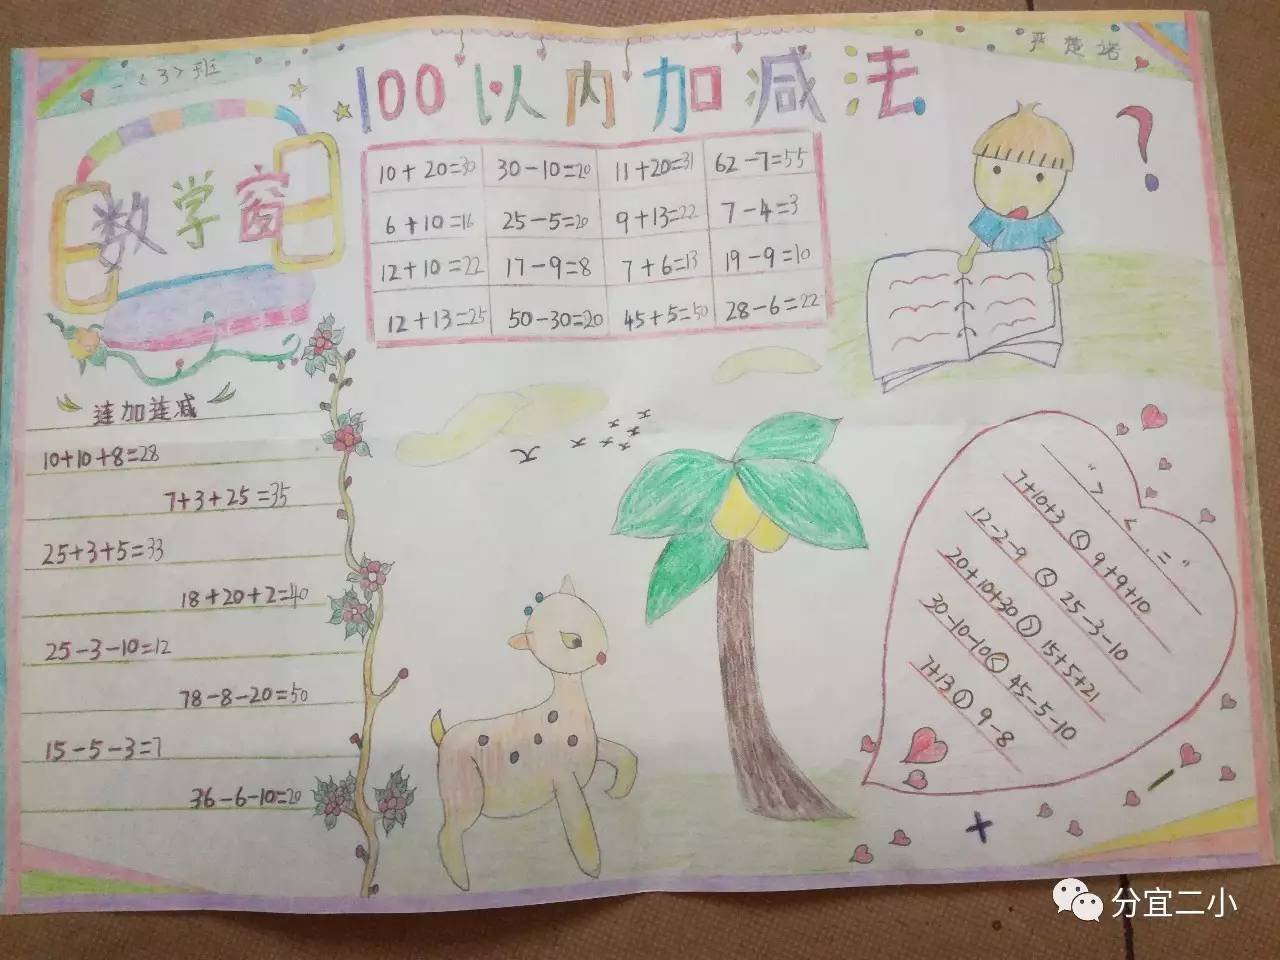 一〈3〉班
严楚诺
100以内加减法
数学窗
10+20=30 30-10=20 11+20=31 62-7=55
6+10=16 25-5=20 9+13=22 7-4=3
12+10=22 17-9=8 7+6=13 19-9=10
12+13=25 50-30=20 45+5=50 28-6=22
?
连加连减
10+10+8=28
7+3+25=35
25+3+5=33
18+20+2=40
25-3-10=12
78-8-20=50
15-5-3=7
36-6-10=20
“>.<.=”
7+10+3<9+9+10
12-2-9<25-3-10
20+10+30>15+5+21
30-10-10<45-5-10
7+13>9-8
+
-
分宜二小